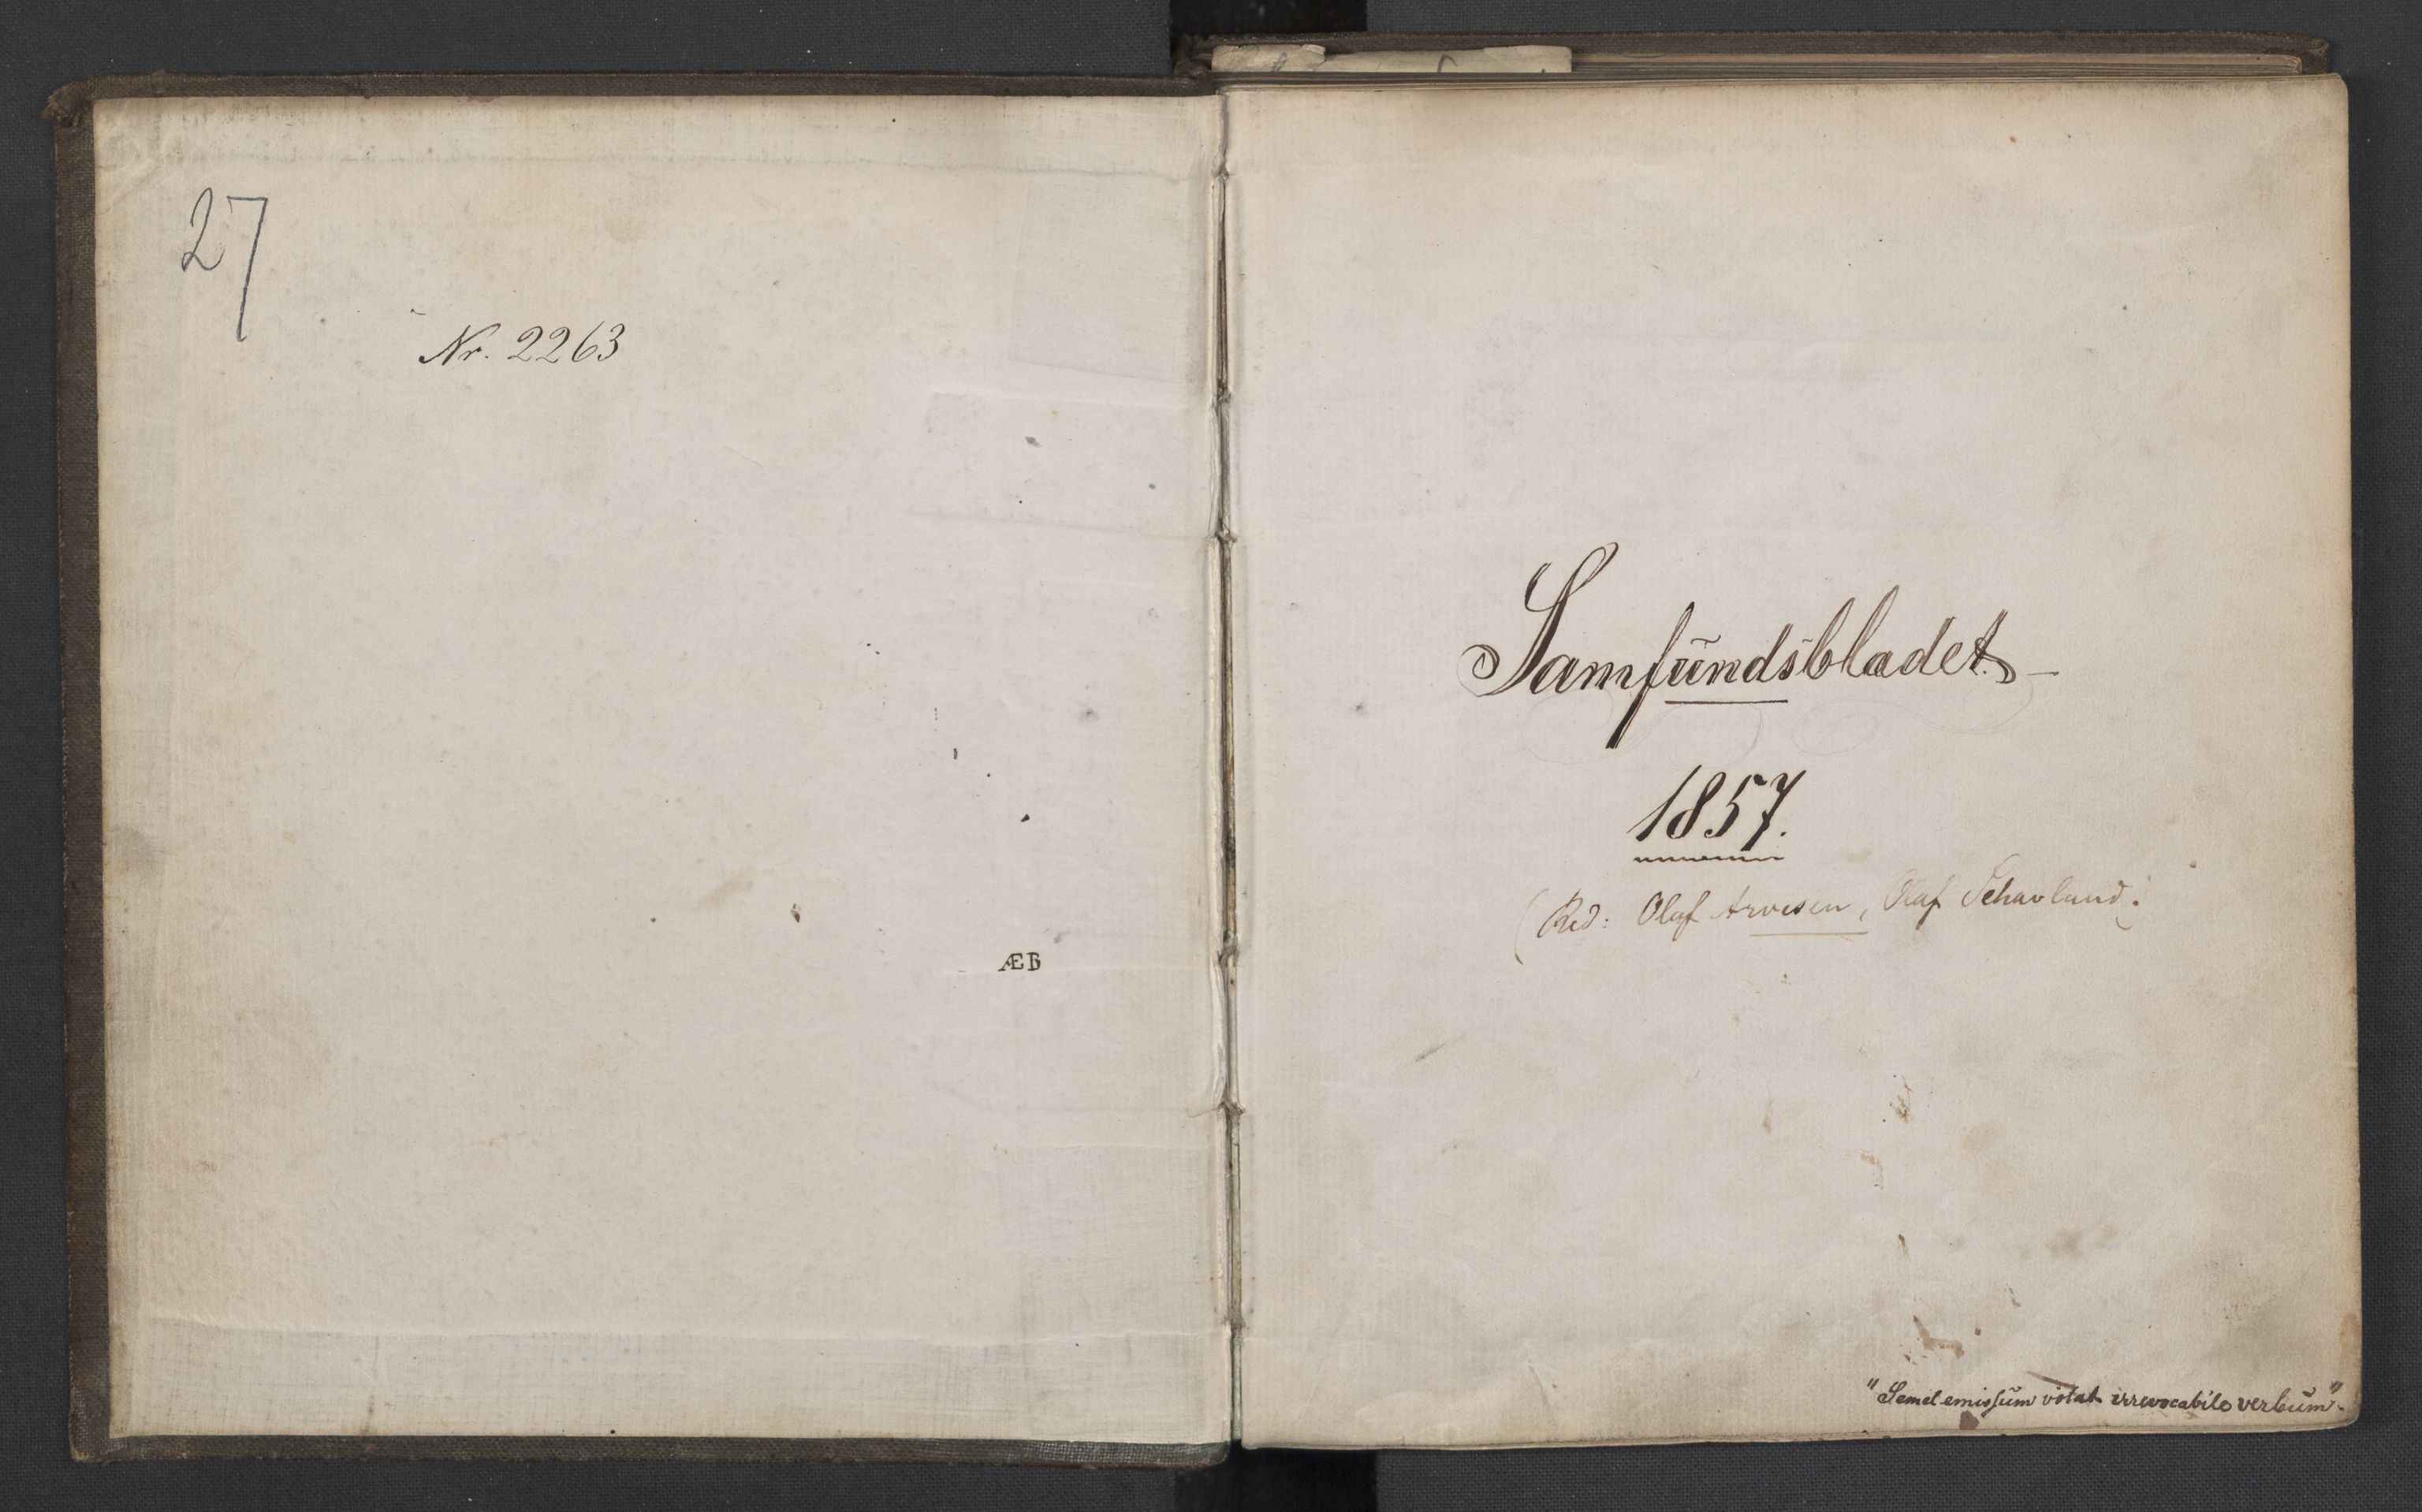 27
Nr. 2263
ÆB
Samfundsbladet
1857.
(Red: Olaf Arvesen, Olaf Schavland.)
"Semel emissum volat irrevocabile verbum".